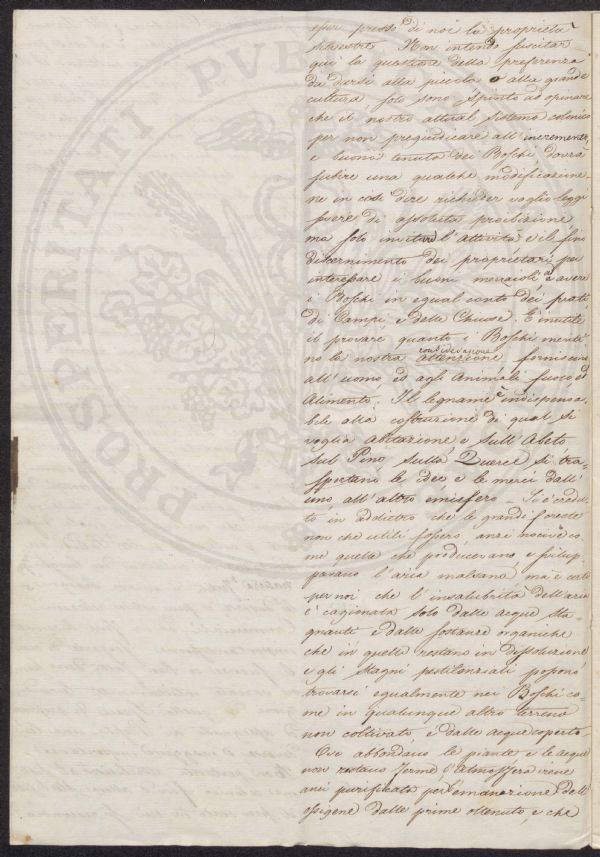 esser presso di noi la proprietà
silvestre. Non intendo suscitar
quì la questione della preferenza
da darsi alla piccola o alla grande
cultura, solo sono spinto ad opinare
che il nostro attual sistema colonico
per non pregiudicare all'incremento,
e buona tenuta dei Boschi dovrà
subire una qualche modificazione.
ne in così dire richieder voglio leggi
severe di assoluta proibizione
ma solo invitar l'attività e il fino
discernimento dei proprietarj per
interessare i buoni mezzaioli a avere
i Boschi in egual conto dei prati
di Campi e delle Chiuse. È inutile
il provare quanto i Boschi meriti
no la nostra attenzione forniscono
considerazione
all'uomo ed agli Animali fuoco ed
Alimento. Il legname è indispensa
bile alla costruzione di qual si
voglia abitazione e sull'Abeto
sul Pino sulla Querce si tra-
sportano le idee e le merci dall'
uno all'altro emisfero. Si è credu-
to in addietro che le grandi foreste
non che utili fossero, anzi nocive co-
me quelle che producevano e svilup-
pavano l'aria malsana, ma è certo
per noi che l'insalubrità dell'aria
è cagionata solo dalle acque sta
gnanti e dalle sostanze organiche
che in quelle restano in dissoluzione
e gli stagni pestilenziali possono
trovarsi egualmente nei Boschi co-
me in qualunque altro terreno
non coltivato, e dalle acque coperto.
Ove abbondano le piante e le acque
non restano ferme l'atmosfera viene
anzi purificata per l'emanazione dell'
ossigene dalle prime ottenuto, e che
PROSPERITATI PVB